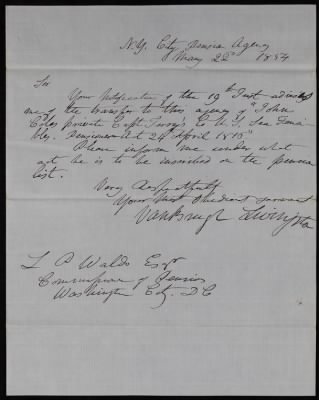 N.Y. City Pension Agency
May 22d 1854
Sir
Your Notification of the 19th Inst advising
me of the transfer to this agency of "John
private Capt Co. U.S. Sea Fenci
bles. Pensioned Act 24 April 1816"
Please inform me under what
act he is to be inscribed on the pension
list.
Very Respectfully
Your Most Obedient servant
VanBrugh Livingston
L P Waldo Esqr
Commissioner of Pensions
Washington City. D.C